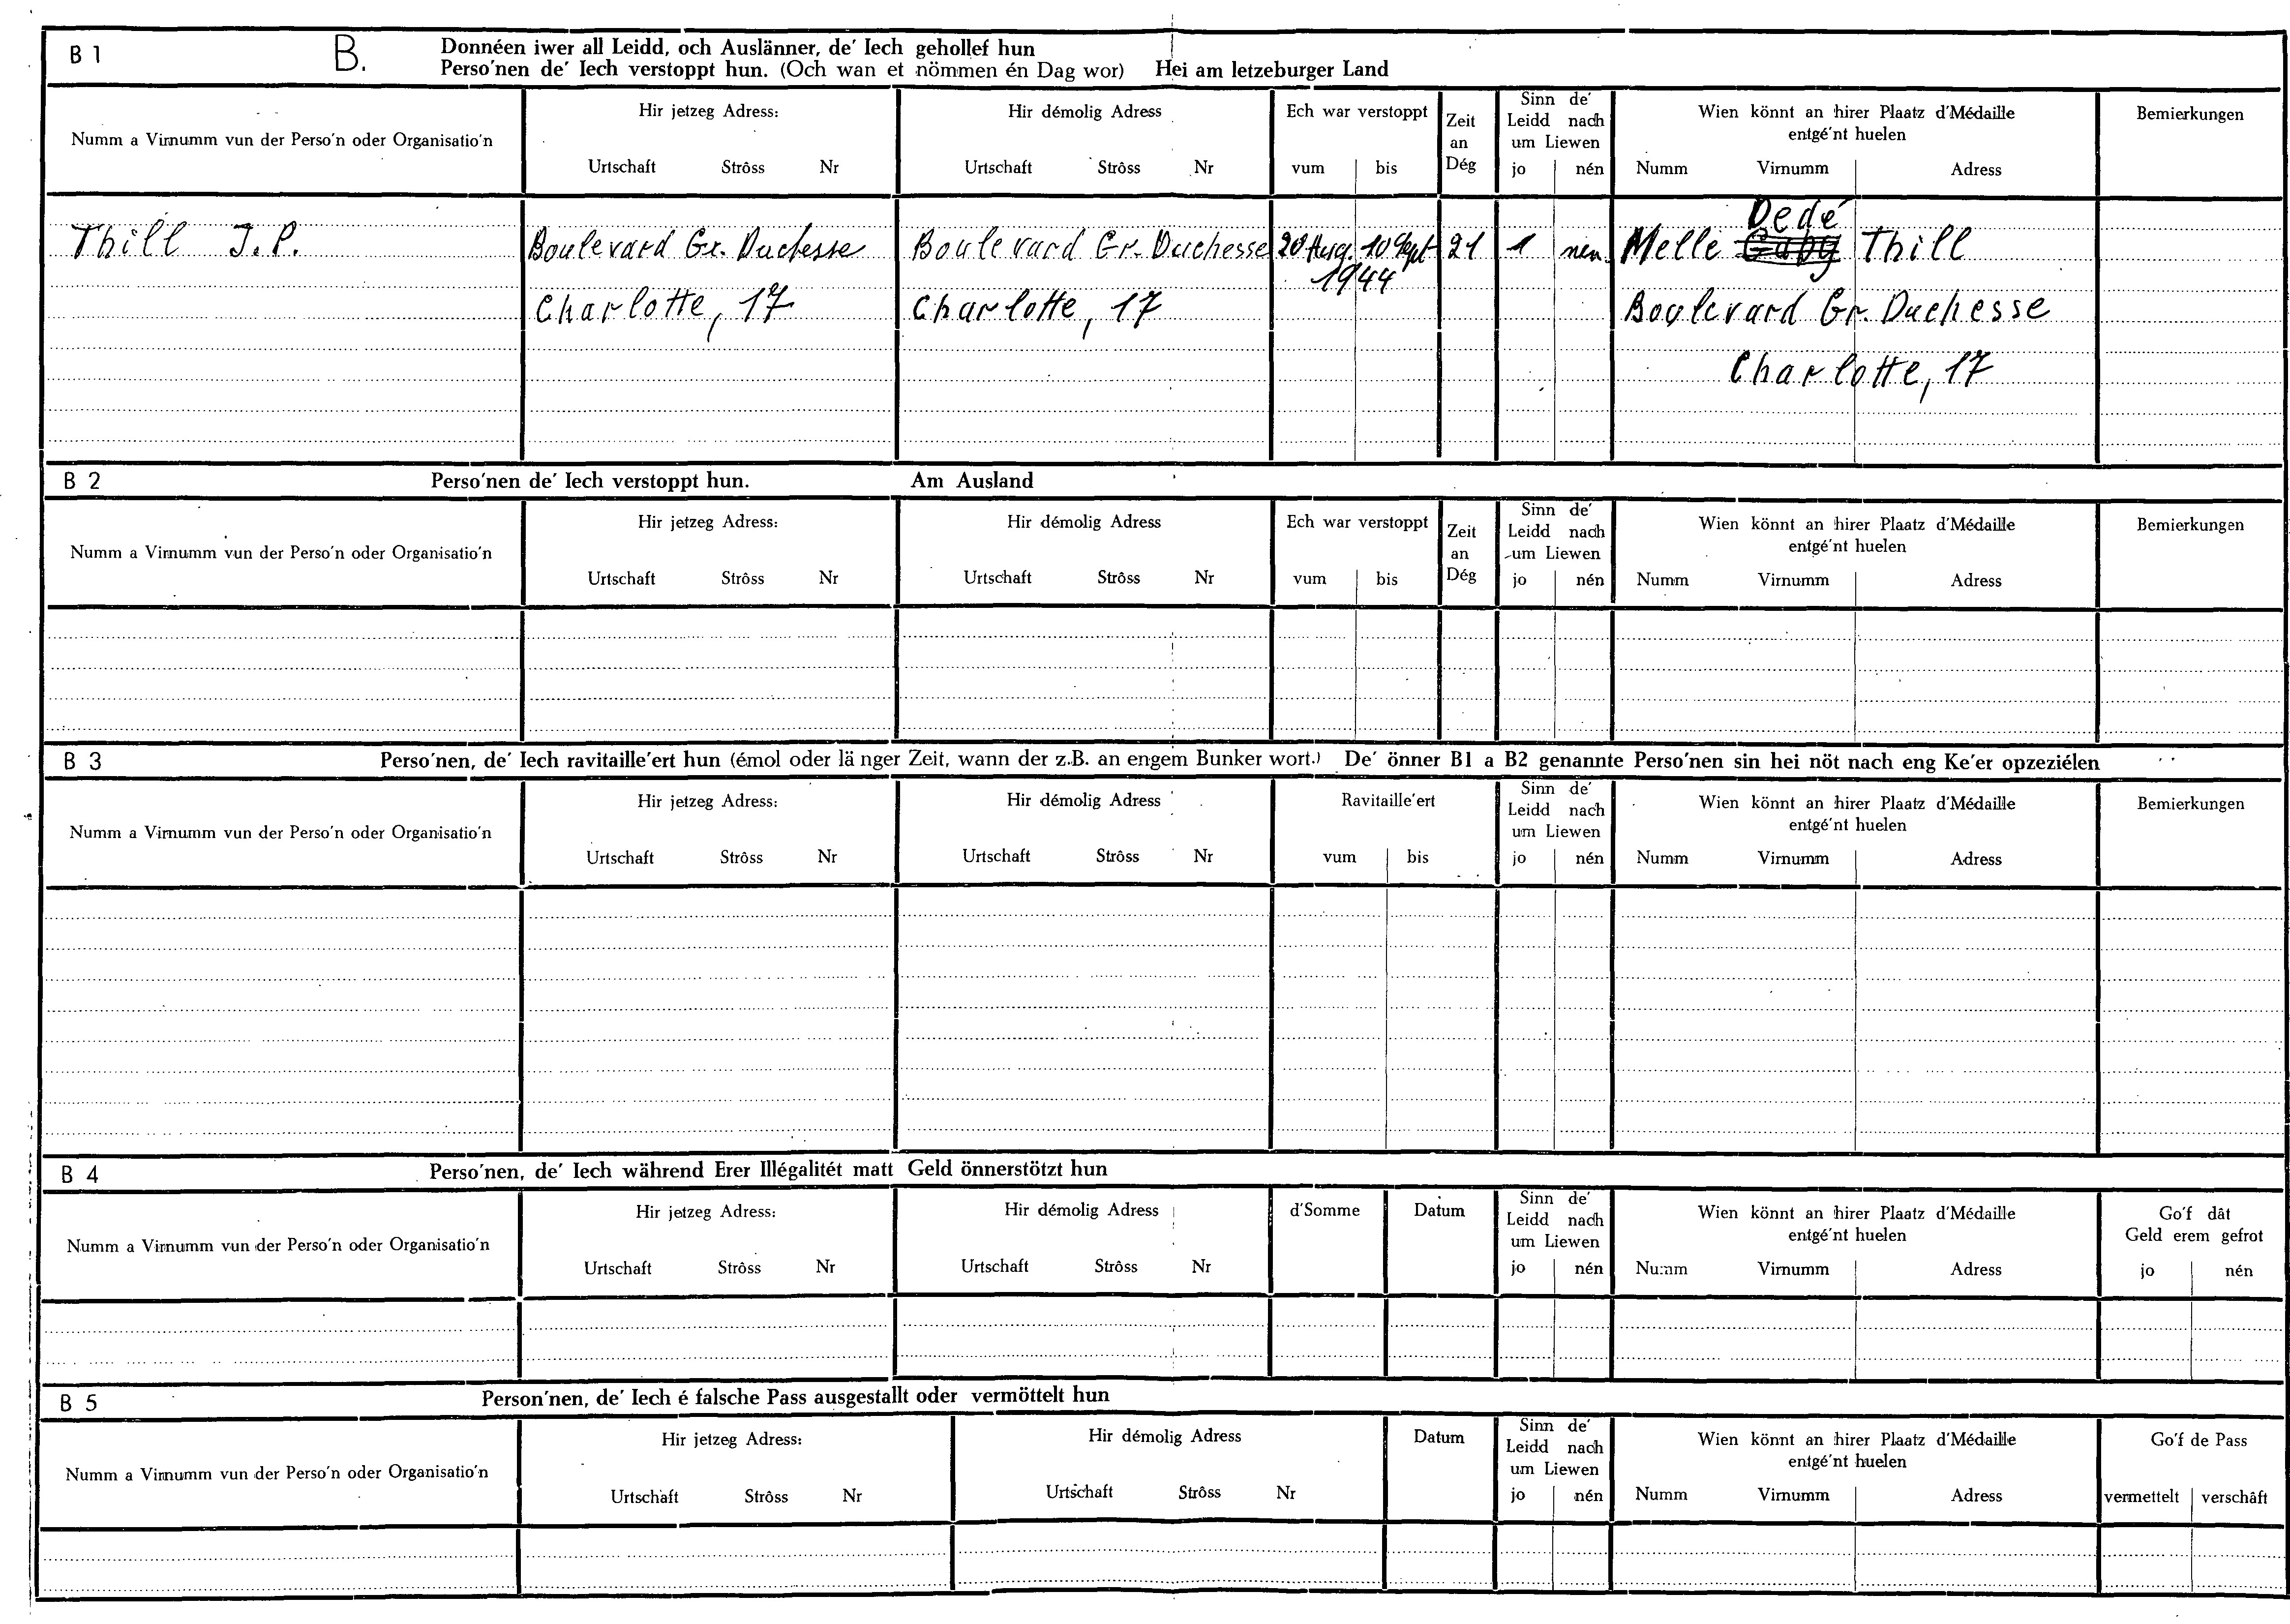 B 1 B. Donnéen iwer all Leidd, och Auslänner, de' Iech gehollef hun
Perso'nen de' Iech verstoppt hun. (Och wan et nömmen én Dag wor) Hei am letzeburger Land
Numm a Virnumm vun der Perso'n oder Organisatio'n
Hir jetzeg Adress:
Urtschaft Strôss Nr
Hir démolig Adress
Urtschaft Strôss Nr
Ech war verstoppt
vum bis
Zeit
an
Dég
Sinn de'
Leidd nach
um Liewen
jo nén
Wien könnt an hirer Plaatz d'Médaille
entgé'nt huelen
Numm Virnumm Adress
Bemierkungen
Thill J.P.
Boulevard Gr. Duchesse
Charlotte, 17
Boulevard Gr. Duchesse
Charlotte, 17
20 Aug. 10 Sept
1944
21
1 nen
Dedé
Melle Gaby Thill
Boulevard Gr. Duchesse
Charlotte, 17
B 2 Perso'nen de' Iech verstoppt hun. Am Ausland
Numm a Virnumm vun der Perso'n oder Organisatio'n
Hir jetzeg Adress:
Urtschaft Strôss Nr
Hir démolig Adress
Urtschaft Strôss Nr
Ech war verstoppt
vum bis
Zeit
an
Dég
Sinn de'
Leidd nach
um Liewen
jo nén
Wien könnt an hirer Plaatz d'Médaille
entgé'nt huelen
Numm Virnumm Adress
Bemierkungen
B 3 Perso'nen, de' Iech ravitaille'ert hun (émol oder länger Zeit, wann der z.B. an engem Bunker wort.) De' önner B1 a B2 genannte Perso'nen sin hei nöt nach eng Ke'er opzeziélen
Numm a Virnumm vun der Perso'n oder Organisatio'n
Hir jetzeg Adress:
Urtschaft Strôss Nr
Hir démolig Adress
Urtschaft Strôss Nr
Ravitaille'ert
vum bis
Sinn de'
Leidd nach
um Liewen
jo nén
Wien könnt an hirer Plaatz d'Médaille
entgé'nt huelen
Numm Virnumm Adress
Bemierkungen
B 4 Perso'nen, de' Iech während Erer Illégalitét matt Geld önnerstötzt hun
Numm a Virnumm vun der Perso'n oder Organisatio'n
Hir jetzeg Adress:
Urtschaft Strôss Nr
Hir démolig Adress
Urtschaft Strôss Nr
d'Somme
Datum
Sinn de'
Leidd nach
um Liewen
jo nén
Wien könnt an hirer Plaatz d'Médaille
entgé'nt huelen
Numm Virnumm Adress
Go'f dât
Geld erem gefrot
jo nén
B 5 Person'nen, de' Iech é falsche Pass ausgestallt oder vermöttelt hun
Numm a Virnumm vun der Perso'n oder Organisatio'n
Hir jetzeg Adress:
Urtschaft Strôss Nr
Hir démolig Adress
Urtschaft Strôss Nr
Datum
Sinn de'
Leidd nach
um Liewen
jo nén
Wien könnt an hirer Plaatz d'Médaille
entgé'nt huelen
Numm Virnumm Adress
Go'f de Pass
vermettelt verschâft